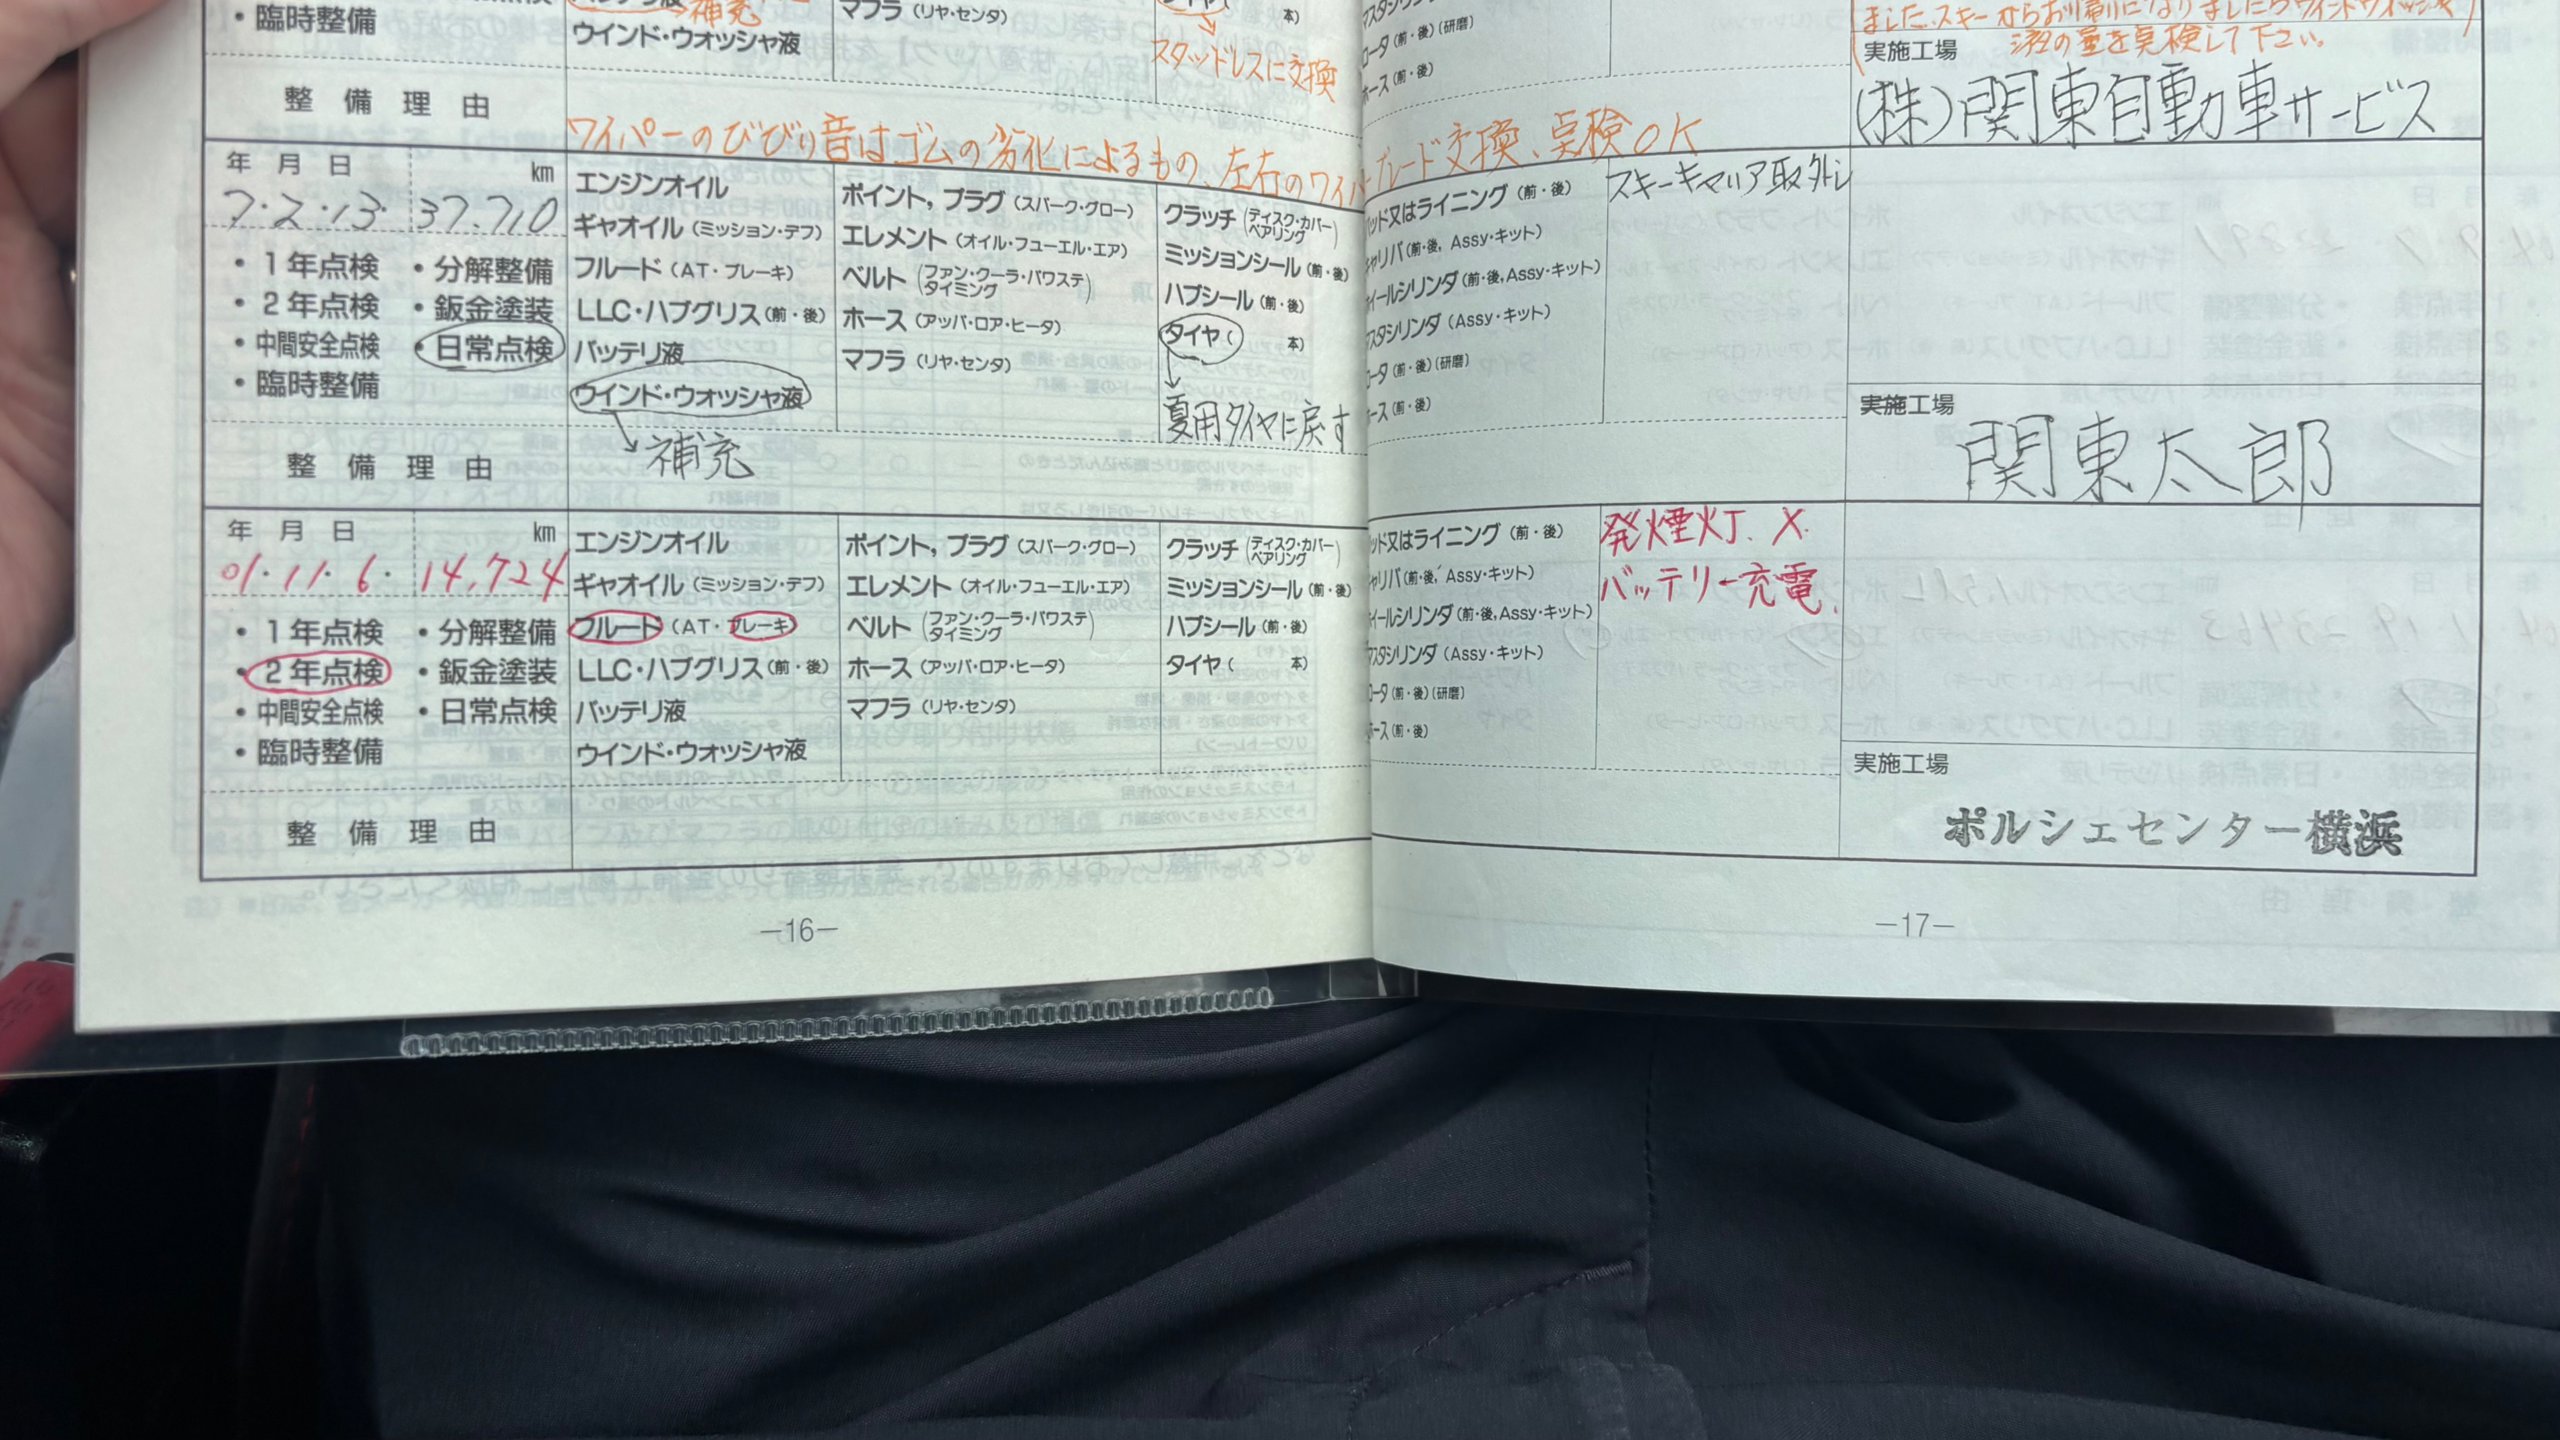 ・臨時整備
補充
ウインド・ウォッシャ液
マフラ (リヤ・センタ)
本)
スタッドレスに交換
ロータ (前・後) (研磨)
ホース (前・後)
ました。スキーからお帰りになりましたらウインドウォッシャ
液の量を点検して下さい。
実施工場
(株)関東自動車サービス
整備理由
ワイパーのびびり音はゴムの劣化によるもの、左右のワイパーブレード交換、点検OK
年月日 km
7・2・13・ 37.710
・1年点検 ・分解整備
・2年点検 ・鈑金塗装
・中間安全点検 ・日常点検
・臨時整備
エンジンオイル
ギヤオイル (ミッション・デフ)
フルード (AT・ブレーキ)
LLC・ハブグリス (前・後)
バッテリ液
ウインド・ウォッシャ液
補充
ポイント, プラグ (スパーク・グロー)
エレメント (オイル・フューエル・エア)
ベルト (ファン・クーラ・パワステ タイミング)
ホース (アッパ・ロア・ヒータ)
マフラ (リヤ・センタ)
クラッチ (ディスク・カバー ベアリング)
ミッションシール (前・後)
ハブシール (前・後)
タイヤ ( 本)
夏用タイヤに戻す
ッド又はライニング (前・後)
ャリパ (前・後, Assy・キット)
イールシリンダ (前・後, Assy・キット)
スタシリンダ (Assy・キット)
ロータ (前・後) (研磨)
ース (前・後)
スキーキャリア取外し
実施工場
関東太郎
整備理由
年月日 km
01・11・6・ 14,724
・1年点検 ・分解整備
・2年点検 ・鈑金塗装
・中間安全点検 ・日常点検
・臨時整備
エンジンオイル
ギヤオイル (ミッション・デフ)
フルード (AT・ブレーキ)
LLC・ハブグリス (前・後)
バッテリ液
ウインド・ウォッシャ液
ポイント, プラグ (スパーク・グロー)
エレメント (オイル・フューエル・エア)
ベルト (ファン・クーラ・パワステ タイミング)
ホース (アッパ・ロア・ヒータ)
マフラ (リヤ・センタ)
クラッチ (ディスク・カバー ベアリング)
ミッションシール (前・後)
ハブシール (前・後)
タイヤ ( 本)
ッド又はライニング (前・後)
ャリパ (前・後, Assy・キット)
イールシリンダ (前・後, Assy・キット)
スタシリンダ (Assy・キット)
ロータ (前・後) (研磨)
ホース (前・後)
発煙灯、X.
バッテリー充電、
実施工場
ポルシェセンター横浜
整備理由
—16—
—17—